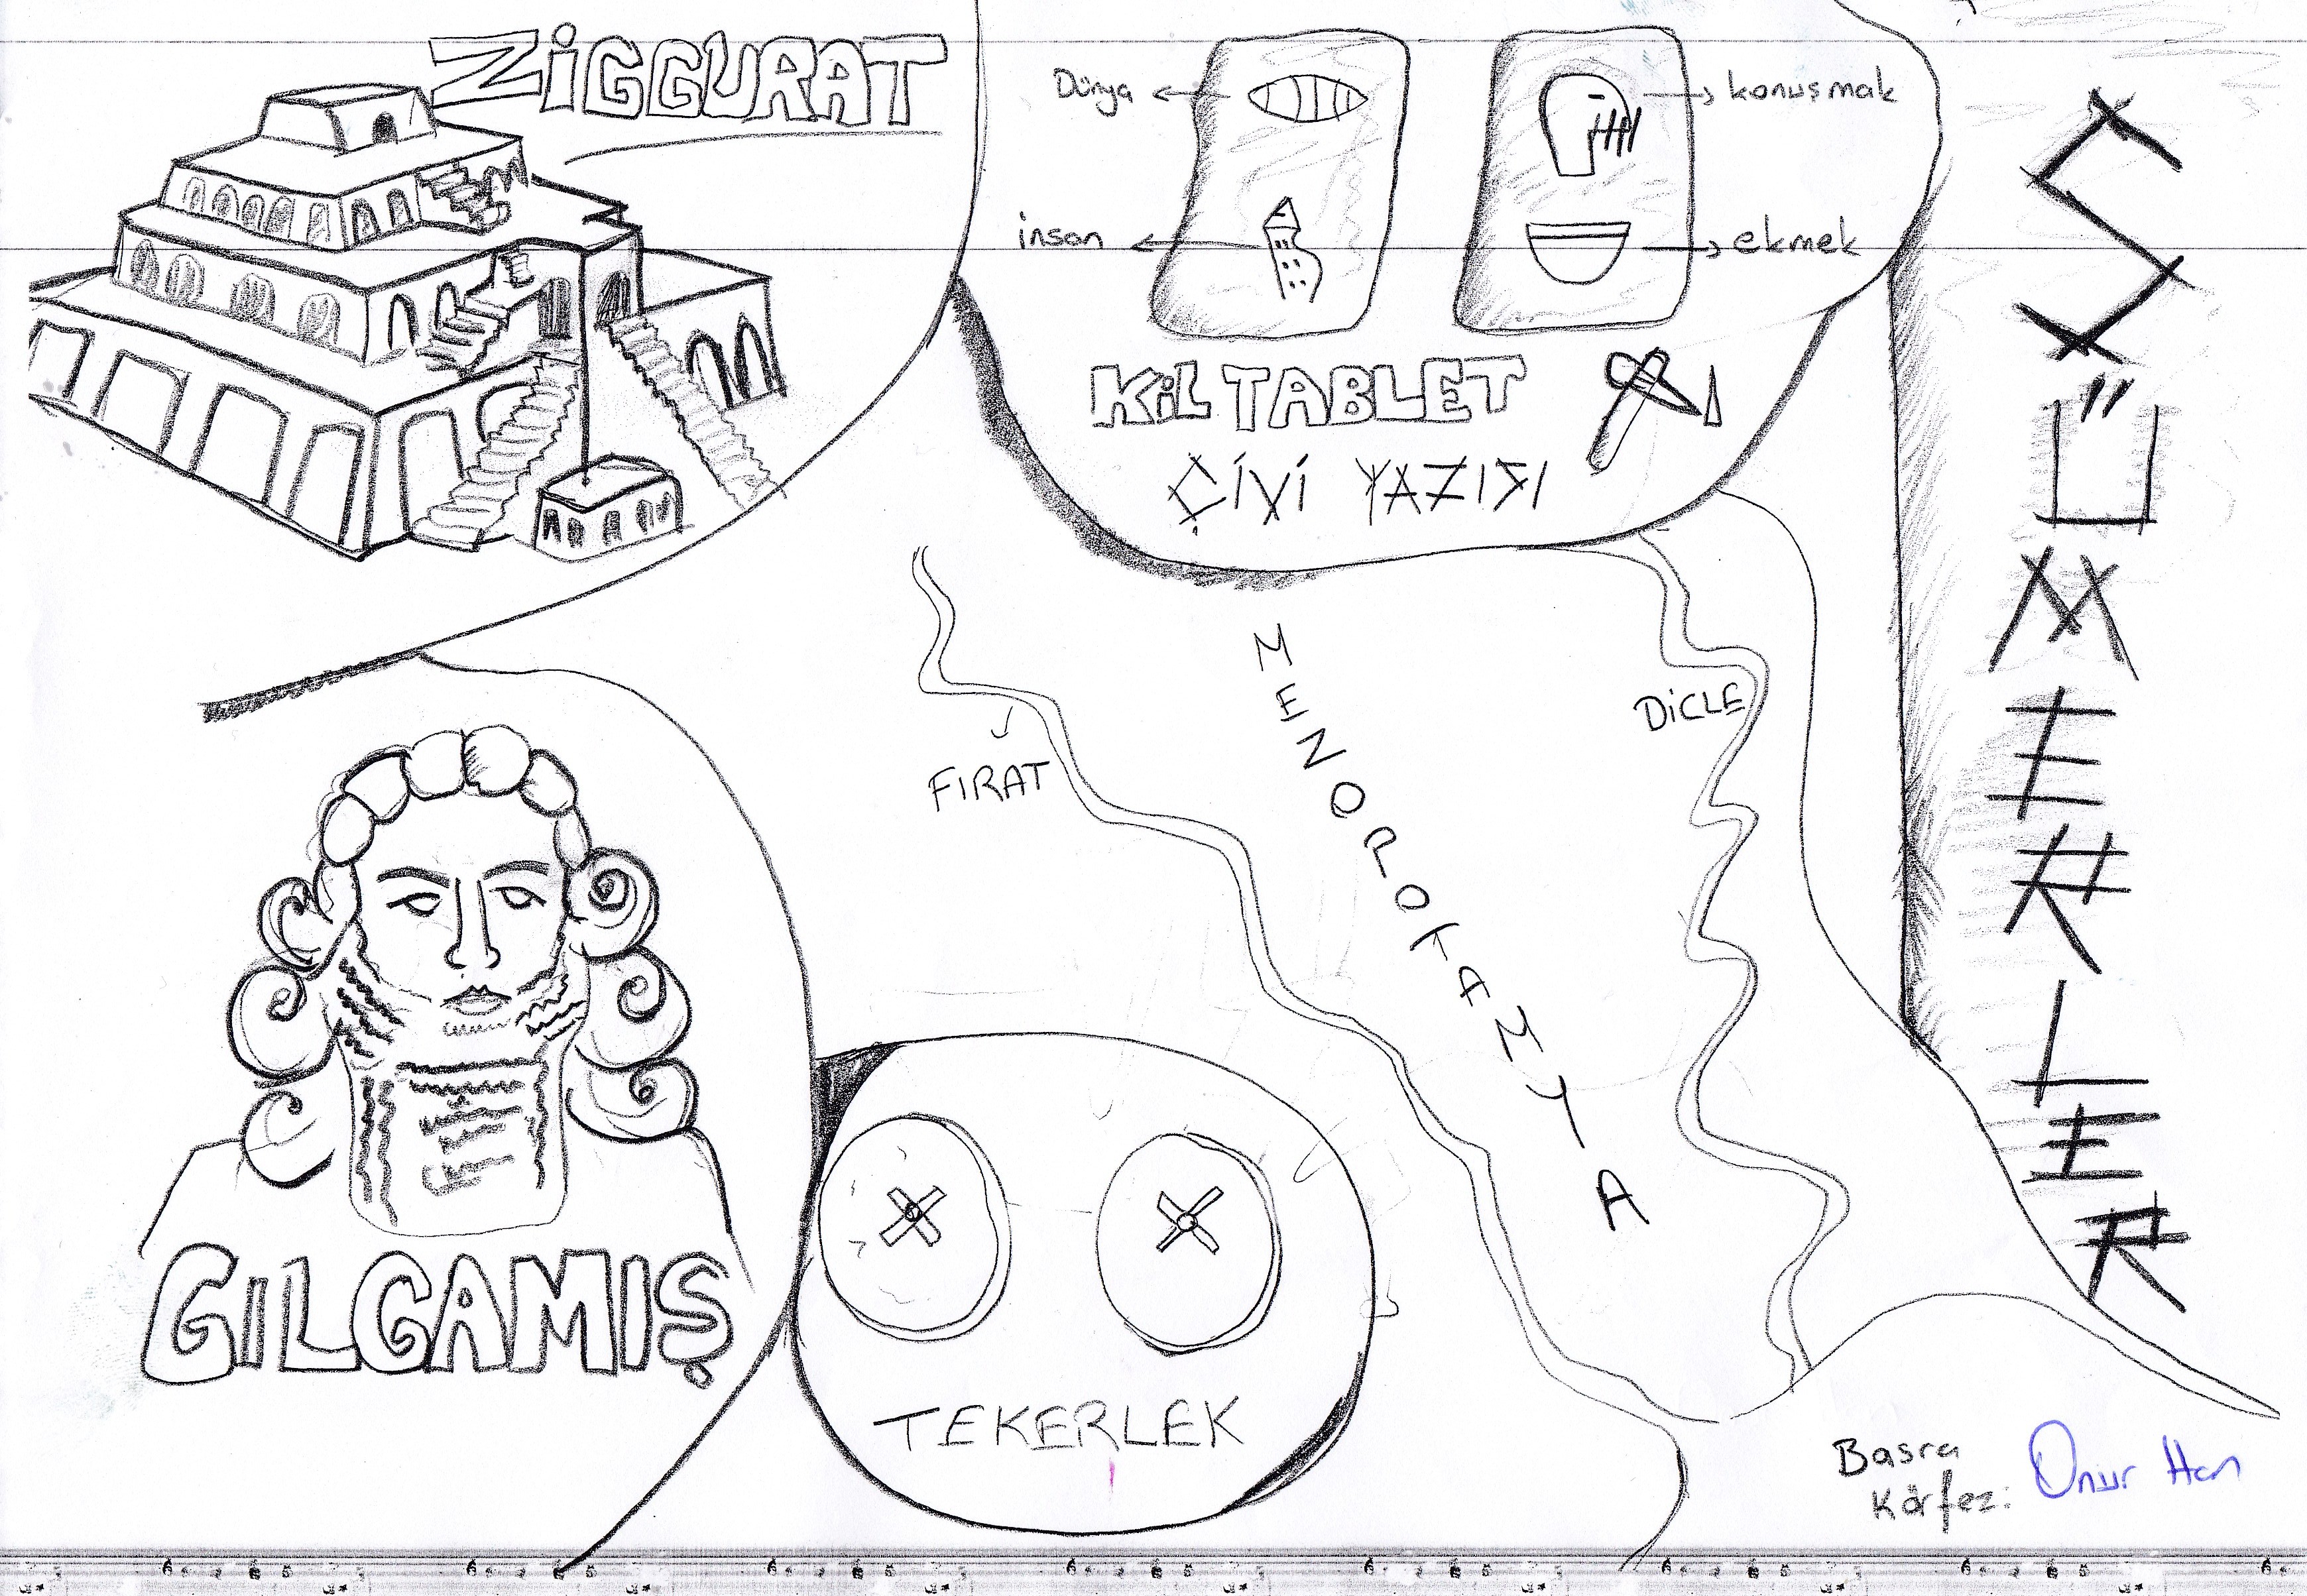 ZiGGURAT
Dünya
konuşmak
insan
ekmek
KİL TABLET
ÇİVİ YAZISI
SÜMERLER
MENOPOTAMYA
DİCLE
FIRAT
GILGAMIŞ
TEKERLEK
Basra
Körfezi
Onur Han